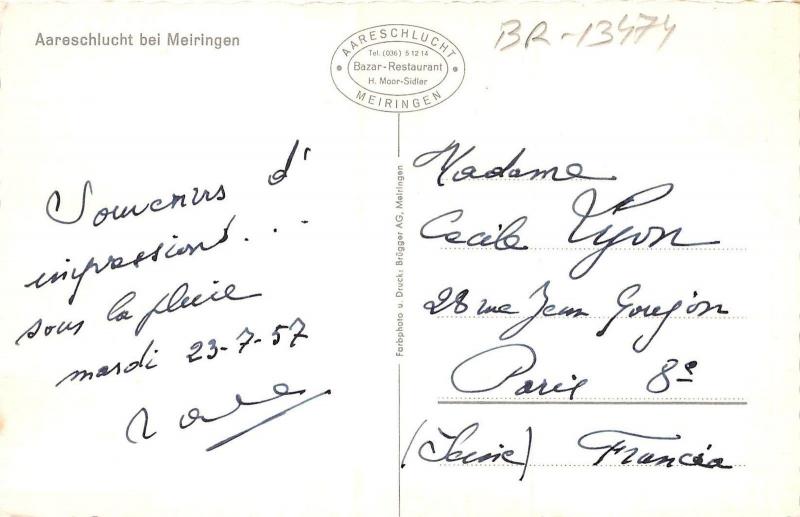 Aareschlucht bei Meiringen
AARESCHLUCHT
Tel. (036) 5 12 14
Bazar-Restaurant
H. Moor-Sidler
MEIRINGEN
BR-13474
Souvenirs d'
impressions...
sous la pluie
mardi 23-7-57
Farbphoto u. Druck: Brügger AG, Meiringen
Madame
Cecile Lyon
28 rue Jean Goujon
Paris 8e
(Seine) France